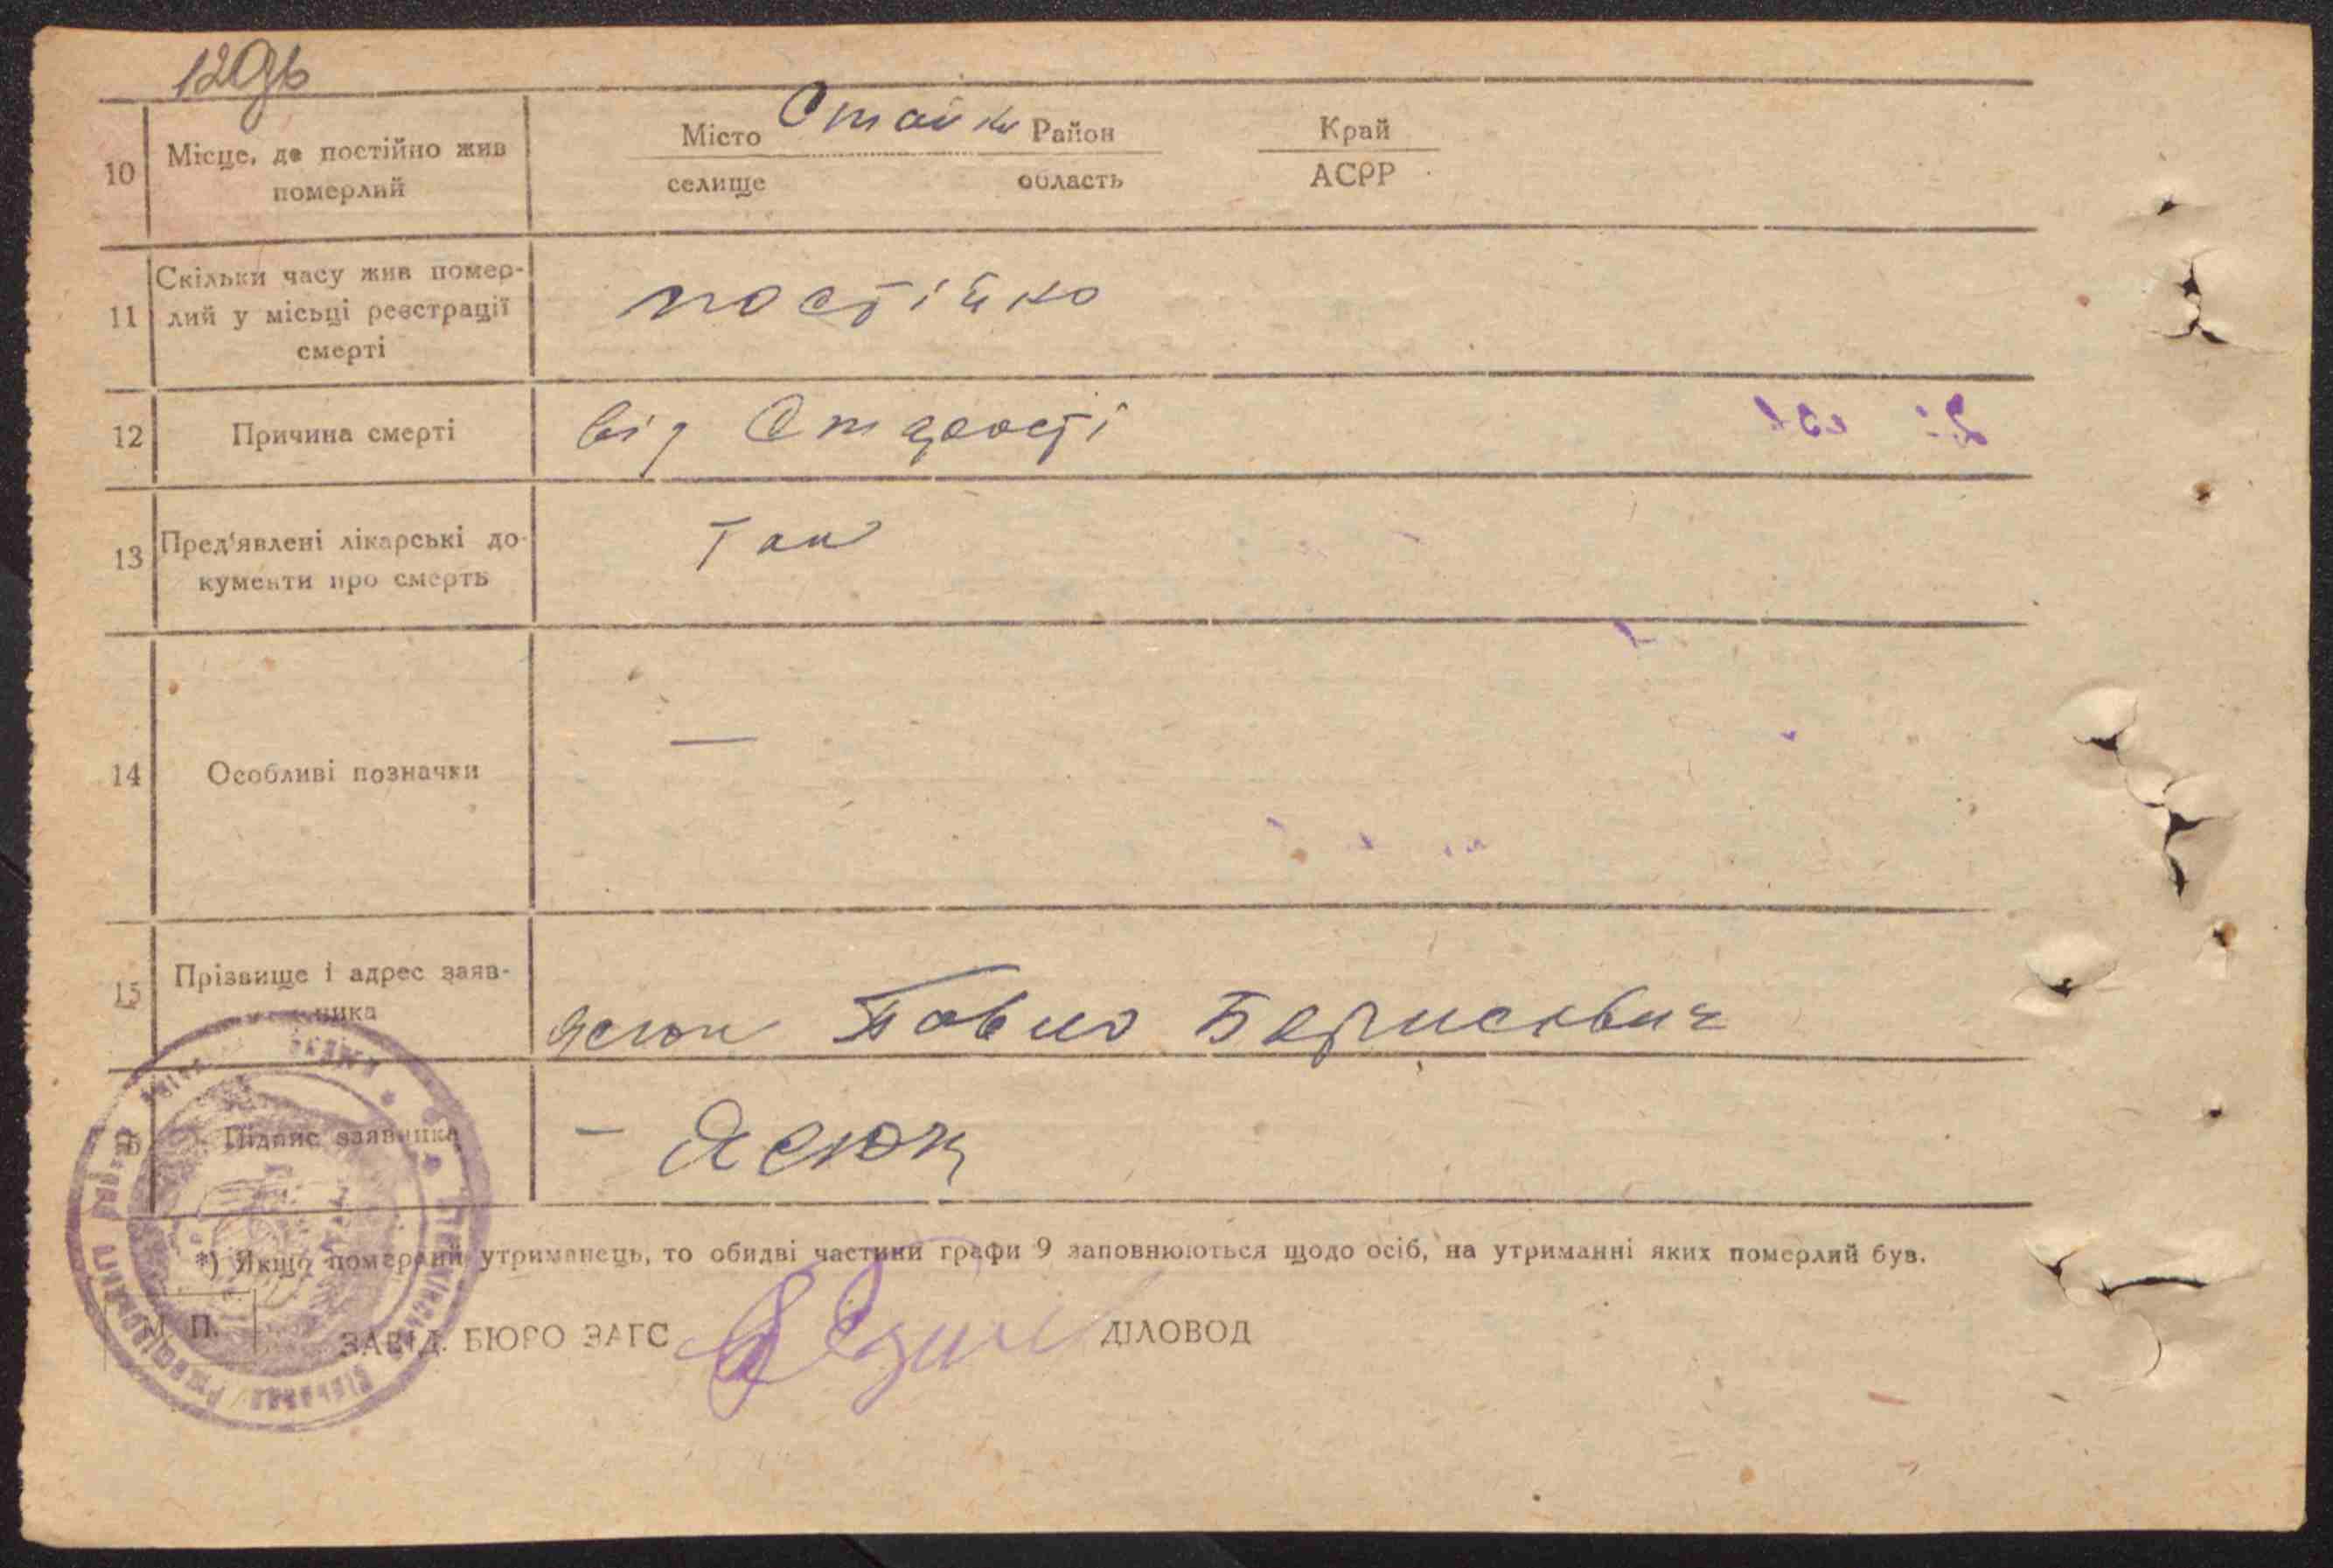 10 Місце, де постійно жив
померлий
Місто Стайки Район Край
селище область АСРР
11 Скільки часу жив помер-
лий у місьці реєстрації
смерті
постійно
12 Причина смерті від Старості
13 Пред'явлені лікарські до-
кументи про смерть
Так
14 Особливі позначки —
15 Прізвище і адрес заяв-
ника
Ясюк Павло Борисович
Підпис заявника – Ясюк
*) Якщо померлий утриманець, то обидві частини графи 9 заповнюються щодо осіб, на утриманні яких померлий був.
М. П.
ЗАВІД. БЮРО ЗАГС ДІЛОВОД